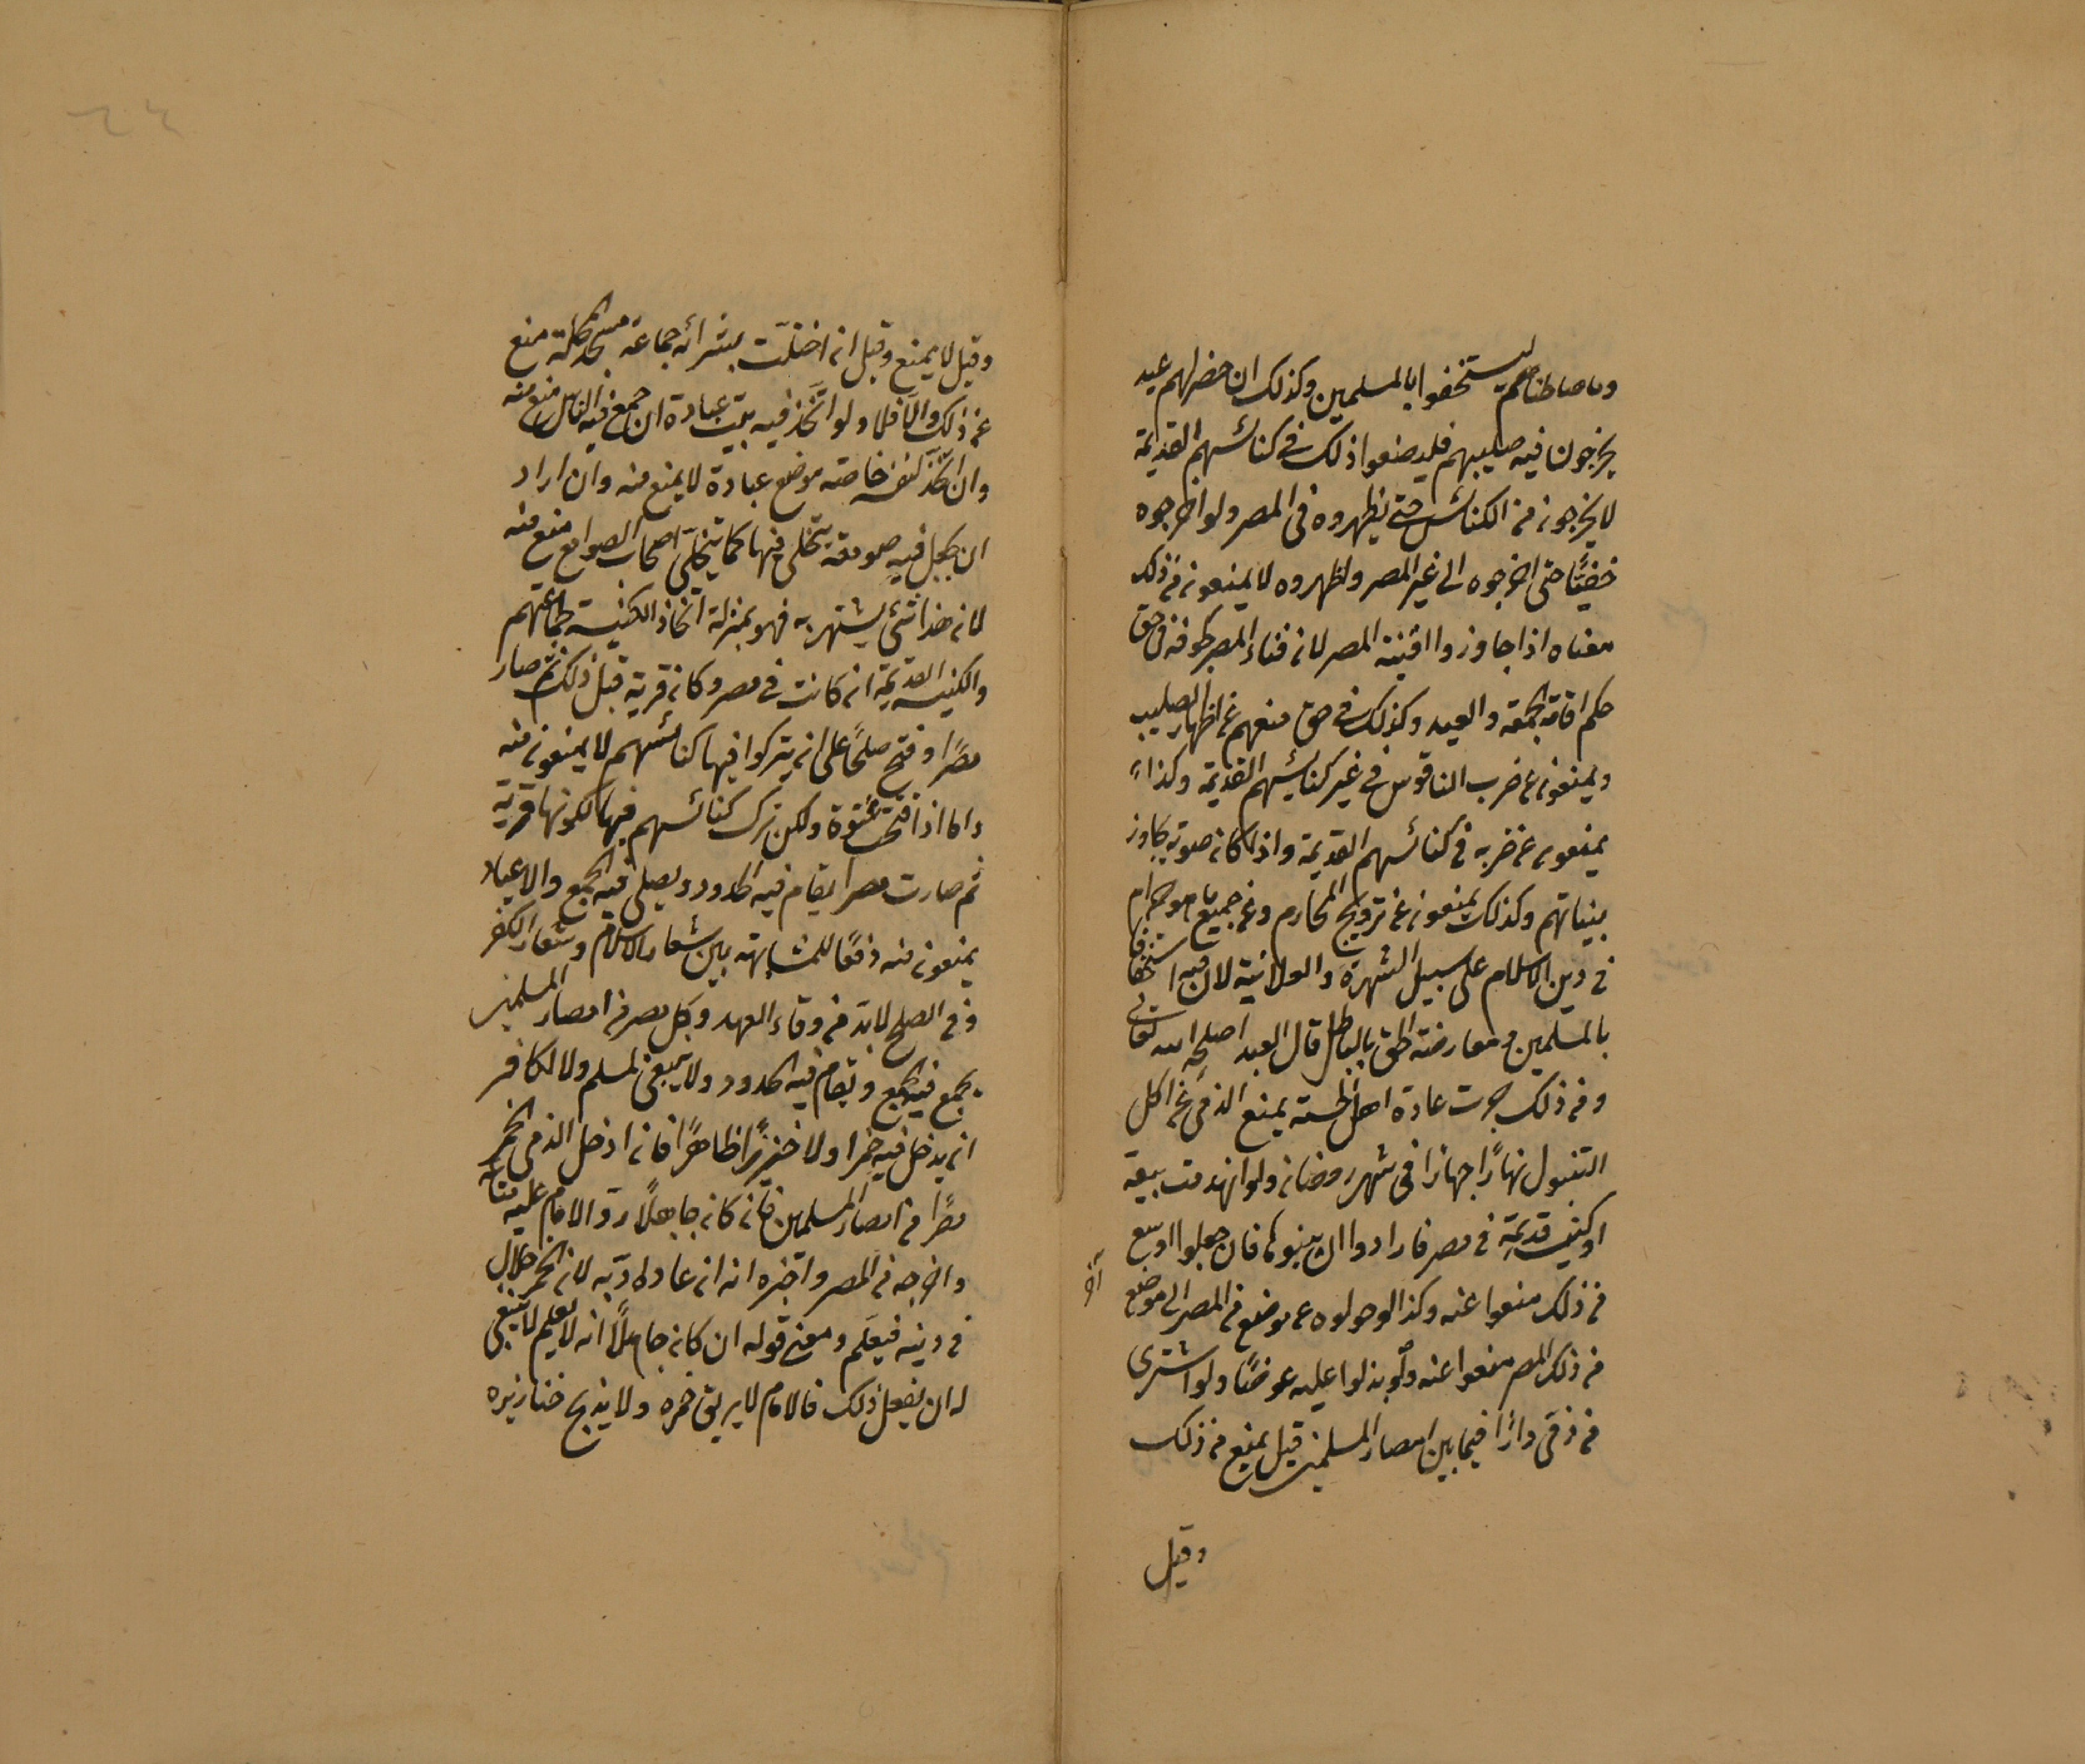 وما صالحناهم ليستخفوا بالمسلمين وكذلك ان حضر لهم عيد
يخرجون فيه صليبهم فليصنعوا ذلك فى كنائسهم القديمة
لا يخرجونه من الكنائس حتى يظهروه فى المصر ولو اخرجوه
خفيًّا حتى اخرجوه الى غير المصر واظهروه لا يمنعون من ذلك
معناه اذا جاوزوا افنية المصر لان فناء المصر كجوفه فى حق
حكم اقامة الجمعة والعيد وكذلك فى حق منعهم عن اظهار الصليب
ويمنعون عن ضرب الناقوس فى غير كنائسهم القديمة وكذا
يمنعون عن ضربه فى كنائسهم القديمة واذا كان صوته يجاوز
بنياتهم وكذلك يمنعون عن ترويج المحارم وعن جميع ما هو حرام
فى دين الاسلام على سبيل الشهرة والعلانية لان فيه استخفافا
بالمسلمين ومعارضة الحق بالباطل قال العبد اصلحه الله تعالى
ومن ذلك جرت عادة اهل الحسبة يمنع الذمى عن اكل
التنبول نهارًا جهارًا فى شهر رمضان ولو انهدمت بيعة
او كنيسة قديمة فى مصر فارادوا ان يبنوها فان جعلوا اوسع
من ذلك منعوا عنه وكذا لو حولوه عن موضع فى المصر الى موضع
آخر
من ذلك المصر منعوا عنه ولو بذلوا عليه عوضًا ولو اشترى
من ذمى دارًا فيما بين امصار المسلمين قيل يمنع من ذلك
وقيل
وقيل لا يمنع وقيل ان اختلت بشرائه جماعة مسجد محلة منع
عن ذلك والا فلا ولو اتخذ فيه بيت عبادة ان جمع فيه الناس منع منه
وان اتخذ لنفسه خاصة موضع عبادة لا يمنع منه وان اراد
ان يجعل فيه صومعة يتخلى فيها كما يتخلى اصحاب الصوامع منع منه
لان هذا شئ يشتهر به فهو بمنزلة اتخاذ الكنيسة لجماعتهم
والكنيسة القديمة ان كانت فى مصر وكان قرية قبل ذلك ثم صار
مصرًا وفتح صلحًا على ان يتركوا فيها كنائسهم لا يمنعون منه
واما اذا فتح عنوة ولكن ترك كنائسهم فيها لكونها قرية
ثم صارت مصرا يقام فيه الحدود ويصلى فيه الجمع والاعياد
يمنعون منه دفعًا للمشابهة بين شعار الاسلام وشعار الكفر
وفى الصلح لا بد من وفاء العهد وكل مصر من امصار المسلمين
يجمع فيه الجمع وتقام فيه الحدود ولا ينبغى لمسلم ولا لكافر
ان يدخل فيه خمرا ولا خنزيرًا ظاهرًا فان ادخل الذمى الخمر
مصرًا من امصار المسلمين فان كان جاهلًا رد الامام عليه متاعه
واخرجه من المصر واخبره انه ان عاد ادّبه لان الخمر حلال
فى دينه فيعلم ومعنى قوله ان كان جاهلًا انه لا يعلم لا ينبغى
له ان يفعل ذلك فالامام لا يريق خمره ولا يذبح خنازيره